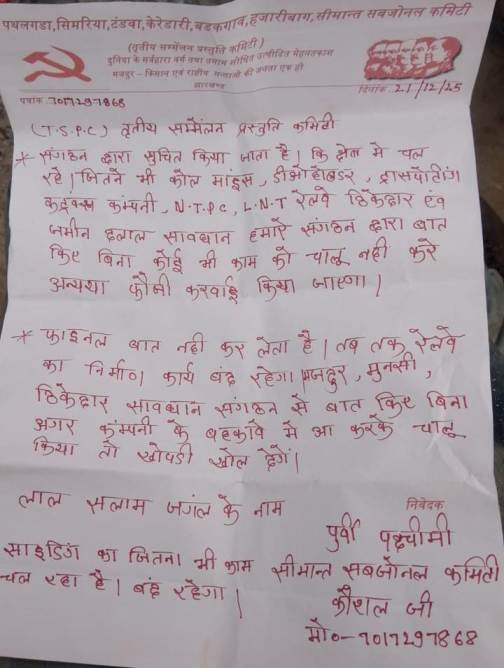 पथलगडा,सिमरिया,टंडवा,केरेडारी,बडकागाव,हजारीबाग,सीमान्त सबजोनल कमिटी
(तृतीय सम्मेलन प्रस्तुति कमिटी)
दुनिया के सर्वहारा वर्ग तथा तमाम शोषित उत्पीडित मेहनतकश
मजदुर – किसान एवं राष्ट्रीय की जनता एक हो
झारखण्ड
पत्रांक 7017297868
दिनांक. 21/12/25
(T.S.P.C) तृतीय सम्मेलन प्रस्तुति कमिटी
* संगठन द्वारा सुचित किया जाता है। कि क्षेत्र मे चल
रहे। जितने भी कोल माइंस, डीओहोल्डर, ट्रासपोटिंग
कंपनी, N.T.P.C, L.N.T रेलवे ठिकेदार एंव
जमीन दलाल सावधान हमारे संगठन द्वारा बात
किए बिना कोई भी काम को चालू नही करे
अन्यथा फौजी करवाई किया जाएगा।
* फाइनल बात नही कर लेता है। तब तक रेलवे
का निर्माण कार्य बंद रहेगा। मजदुर, मुनसी,
ठिकेदार सावधान संगठन से बात किए बिना
अगर कंम्पनी के बहकावे मे आ करके चालू
किया तो खोपडी खोल देगें।
लाल सलाम जगंल के नाम
निवेदक
पुर्वी पश्चीमी
साइडिंग का जितना भी काम सीमान्त सबजोनल कमिटी
चल रहा है। बंद रहेगा।
कौशल जी
मो०-7017297868